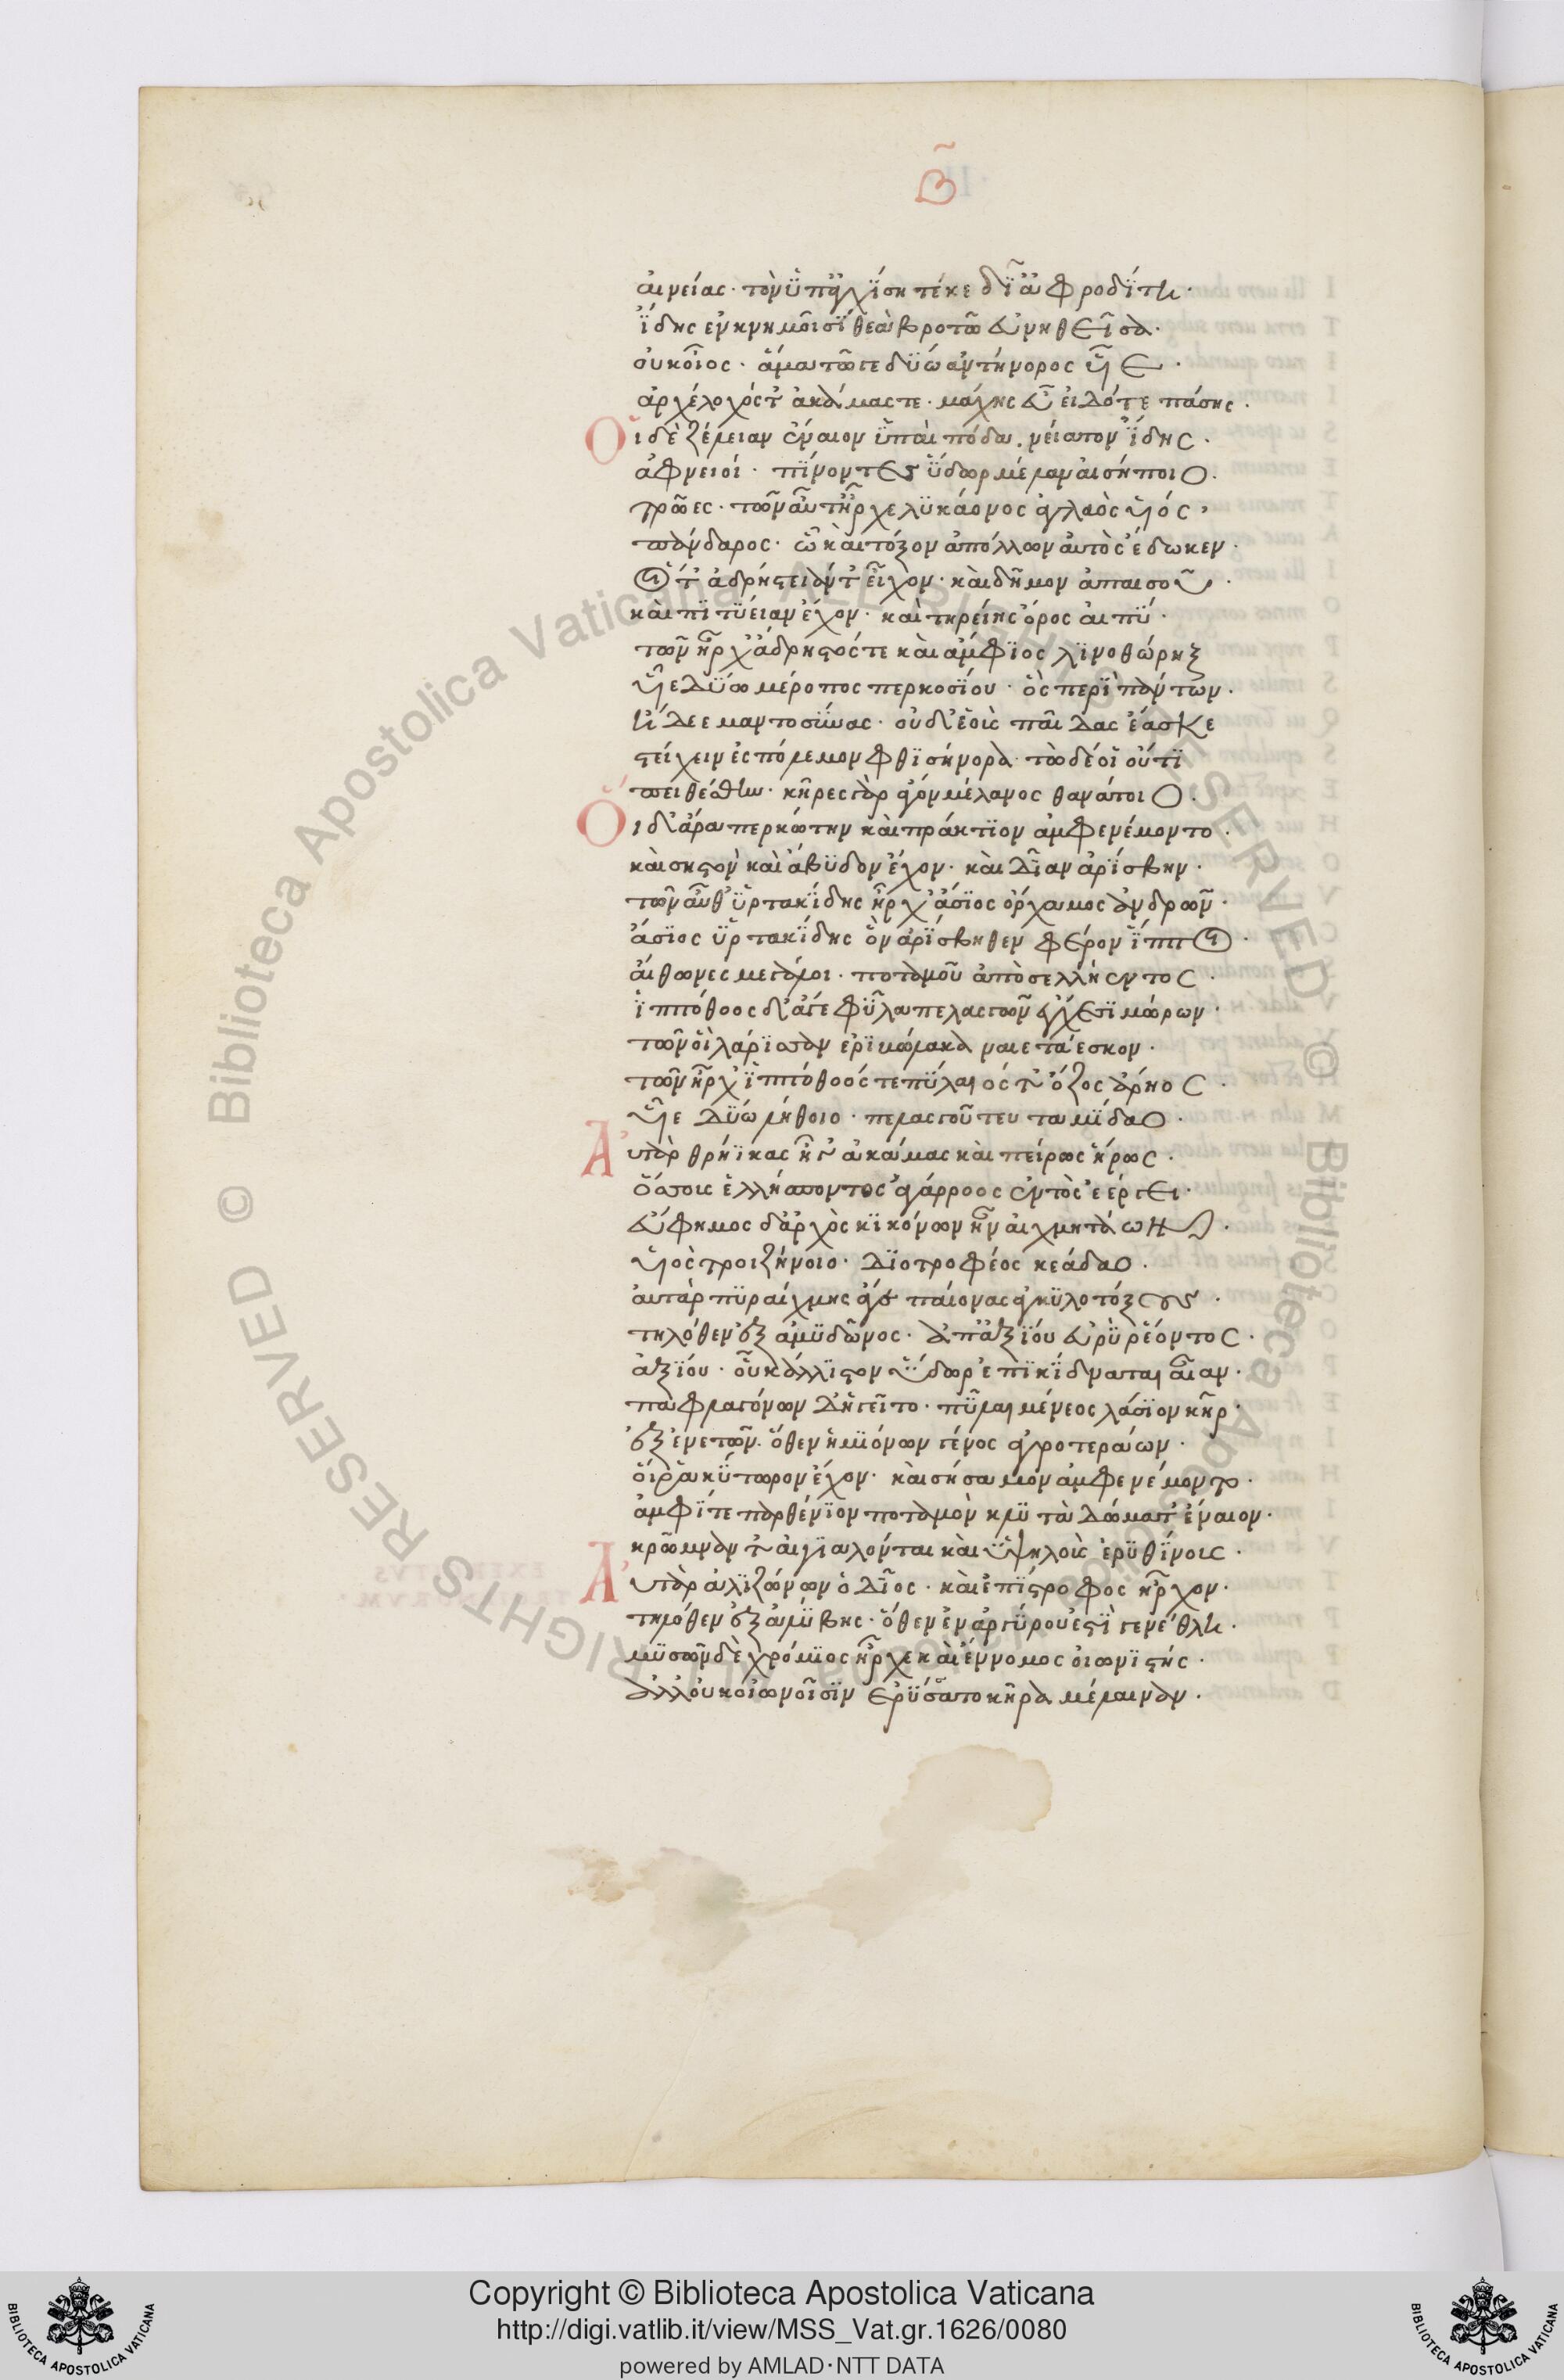 Β
αἰνείας· τὸν ὑπ' ἀγχίση τέκε δῖ' ἀφροδίτη·
ἴδης ἐν κνημοῖσι θεὰ βροτῶ εὐνηθεῖσα·
οὐκ οἶος· ἅμα τῶ γε δύω ἀντήνορος υἷε·
ἀρχέλοχός τ' ἀκάμας τε· μάχης εὖ εἰδότε πάσης·
Οἳ δὲ ζέλειαν ἔναιον ὑπαὶ πόδα νείατον ἴδης·
ἀφνειοί· πίνοντες ὕδωρ μέλαν αἰσήποιο·
τρῶες· τῶν αὖτ' ἦρχε λυκάονος ἀγλαὸς υἱός·
πάνδαρος· ὧ καὶ τόξον ἀπόλλων αὐτὸς ἔδωκεν·
Οἳ τ' ἀδρήστειάν τ' εἶχον· καὶ δῆμον ἀπαισοῦ·
καὶ πιτύειαν ἔχον· καὶ τηρείης ὄρος αἰπύ·
τῶν ἦρχ' ἄδρηστός τε καὶ ἄμφιος λινοθώρηξ
υἷε δύω μέροπος περκοσίου· ὃς περὶ πάντων·
ἤδεε μαντοσύνας· οὐδ' ἑοὺς παῖδας ἔασκε
στείχειν ἐς πόλεμον φθισήνορα· τὼ δέ οἱ οὔτι
πειθέσθην· κῆρες γὰρ ἄγον μέλανος θανάτοιο·
Οἳ δ' ἄρα περκώτην καὶ πράκτιον ἀμφενέμοντο·
καὶ σηστὸν καὶ ἄβυδον ἔχον· καὶ δῖαν ἀρίσβην·
τῶν αὖθ' ὑρτακίδης ἦρχ' ἄσιος ὄρχαμος ἀνδρῶν·
ἄσιος ὑρτακίδης ὃν ἀρίσβηθεν φέρον ἵπποι·
αἴθωνες μεγάλοι· ποταμοῦ ἀπὸ σελλήεντος·
ἱππόθοος δ' ἄγε φῦλα πελασγῶν ἐγχεσιμώρων·
τῶν οἳ λάρισαν ἐριβώλακα ναιετάεσκον·
τῶν ἦρχ' ἱππόθοός τε πύλαιός τ' ὄζος ἄρηος·
υἷε δύω λήθοιο· πελασγοῦ τευταμίδαο·
Αὐτὰρ θρήικας ἦγ' ἀκάμας καὶ πείρως ἥρως·
ὅσσους ἑλλήσποντος ἀγάρροος ἐντὸς ἐέργει·
εὔφημος δ' ἀρχὸς κικόνων ἦν αἰχμητάων·
υἱὸς τροιζήνοιο· διοτροφέος κεάδαο·
αὐτὰρ πυραίχμης ἄγε παίονας ἀγκυλοτόξους·
τηλόθεν ἐξ ἀμυδῶνος· ἀπ' ἀξιοῦ εὐρὺ ῥέοντος·
ἀξιοῦ· οὗ κάλλιστον ὕδωρ ἐπικίδναται αἶαν·
παφλαγόνων δ' ἡγεῖτο· πυλαιμένεος λάσιον κῆρ·
ἐξ ἐνετῶν· ὅθεν ἡμιόνων γένος ἀγροτεράων·
οἵ ῥα κύτωρον ἔχον· καὶ σήσαμον ἀμφενέμοντο·
ἀμφί τε παρθένιον ποταμὸν κλυτὰ δώματ' ἔναιον·
κρῶμνάν τ' αἰγιαλόν ται καὶ ὑψηλοὺς ἐρυθίνους·
Αὐτὰρ ἁλιζώνων ὁ δῖος· καὶ ἐπίστροφος ἦρχον·
τηλόθεν ἐξ ἀλύβης· ὅθεν ἐν ἀργύρου ἐστὶ γενέθλη·
μυσῶν δὲ χρόμιος ἦρχε καὶ ἔννομος οἰωνιστής·
ἀλλ' οὐκ οἰωνοῖσιν ἐρύσατο κῆρα μέλαιναν·
Copyright © Biblioteca Apostolica Vaticana
http://digi.vatlib.it/view/MSS_Vat.gr.1626/0080
powered by AMLAD·NTT DATA
BIBLIOTECA APOSTOLICA VATICANA
BIBLIOTECA APOSTOLICA VATICANA
© Biblioteca Apostolica Vaticana ALL RIGHTS RESERVED
© Biblioteca Apostolica Vaticana ALL RIGHTS RESERVED